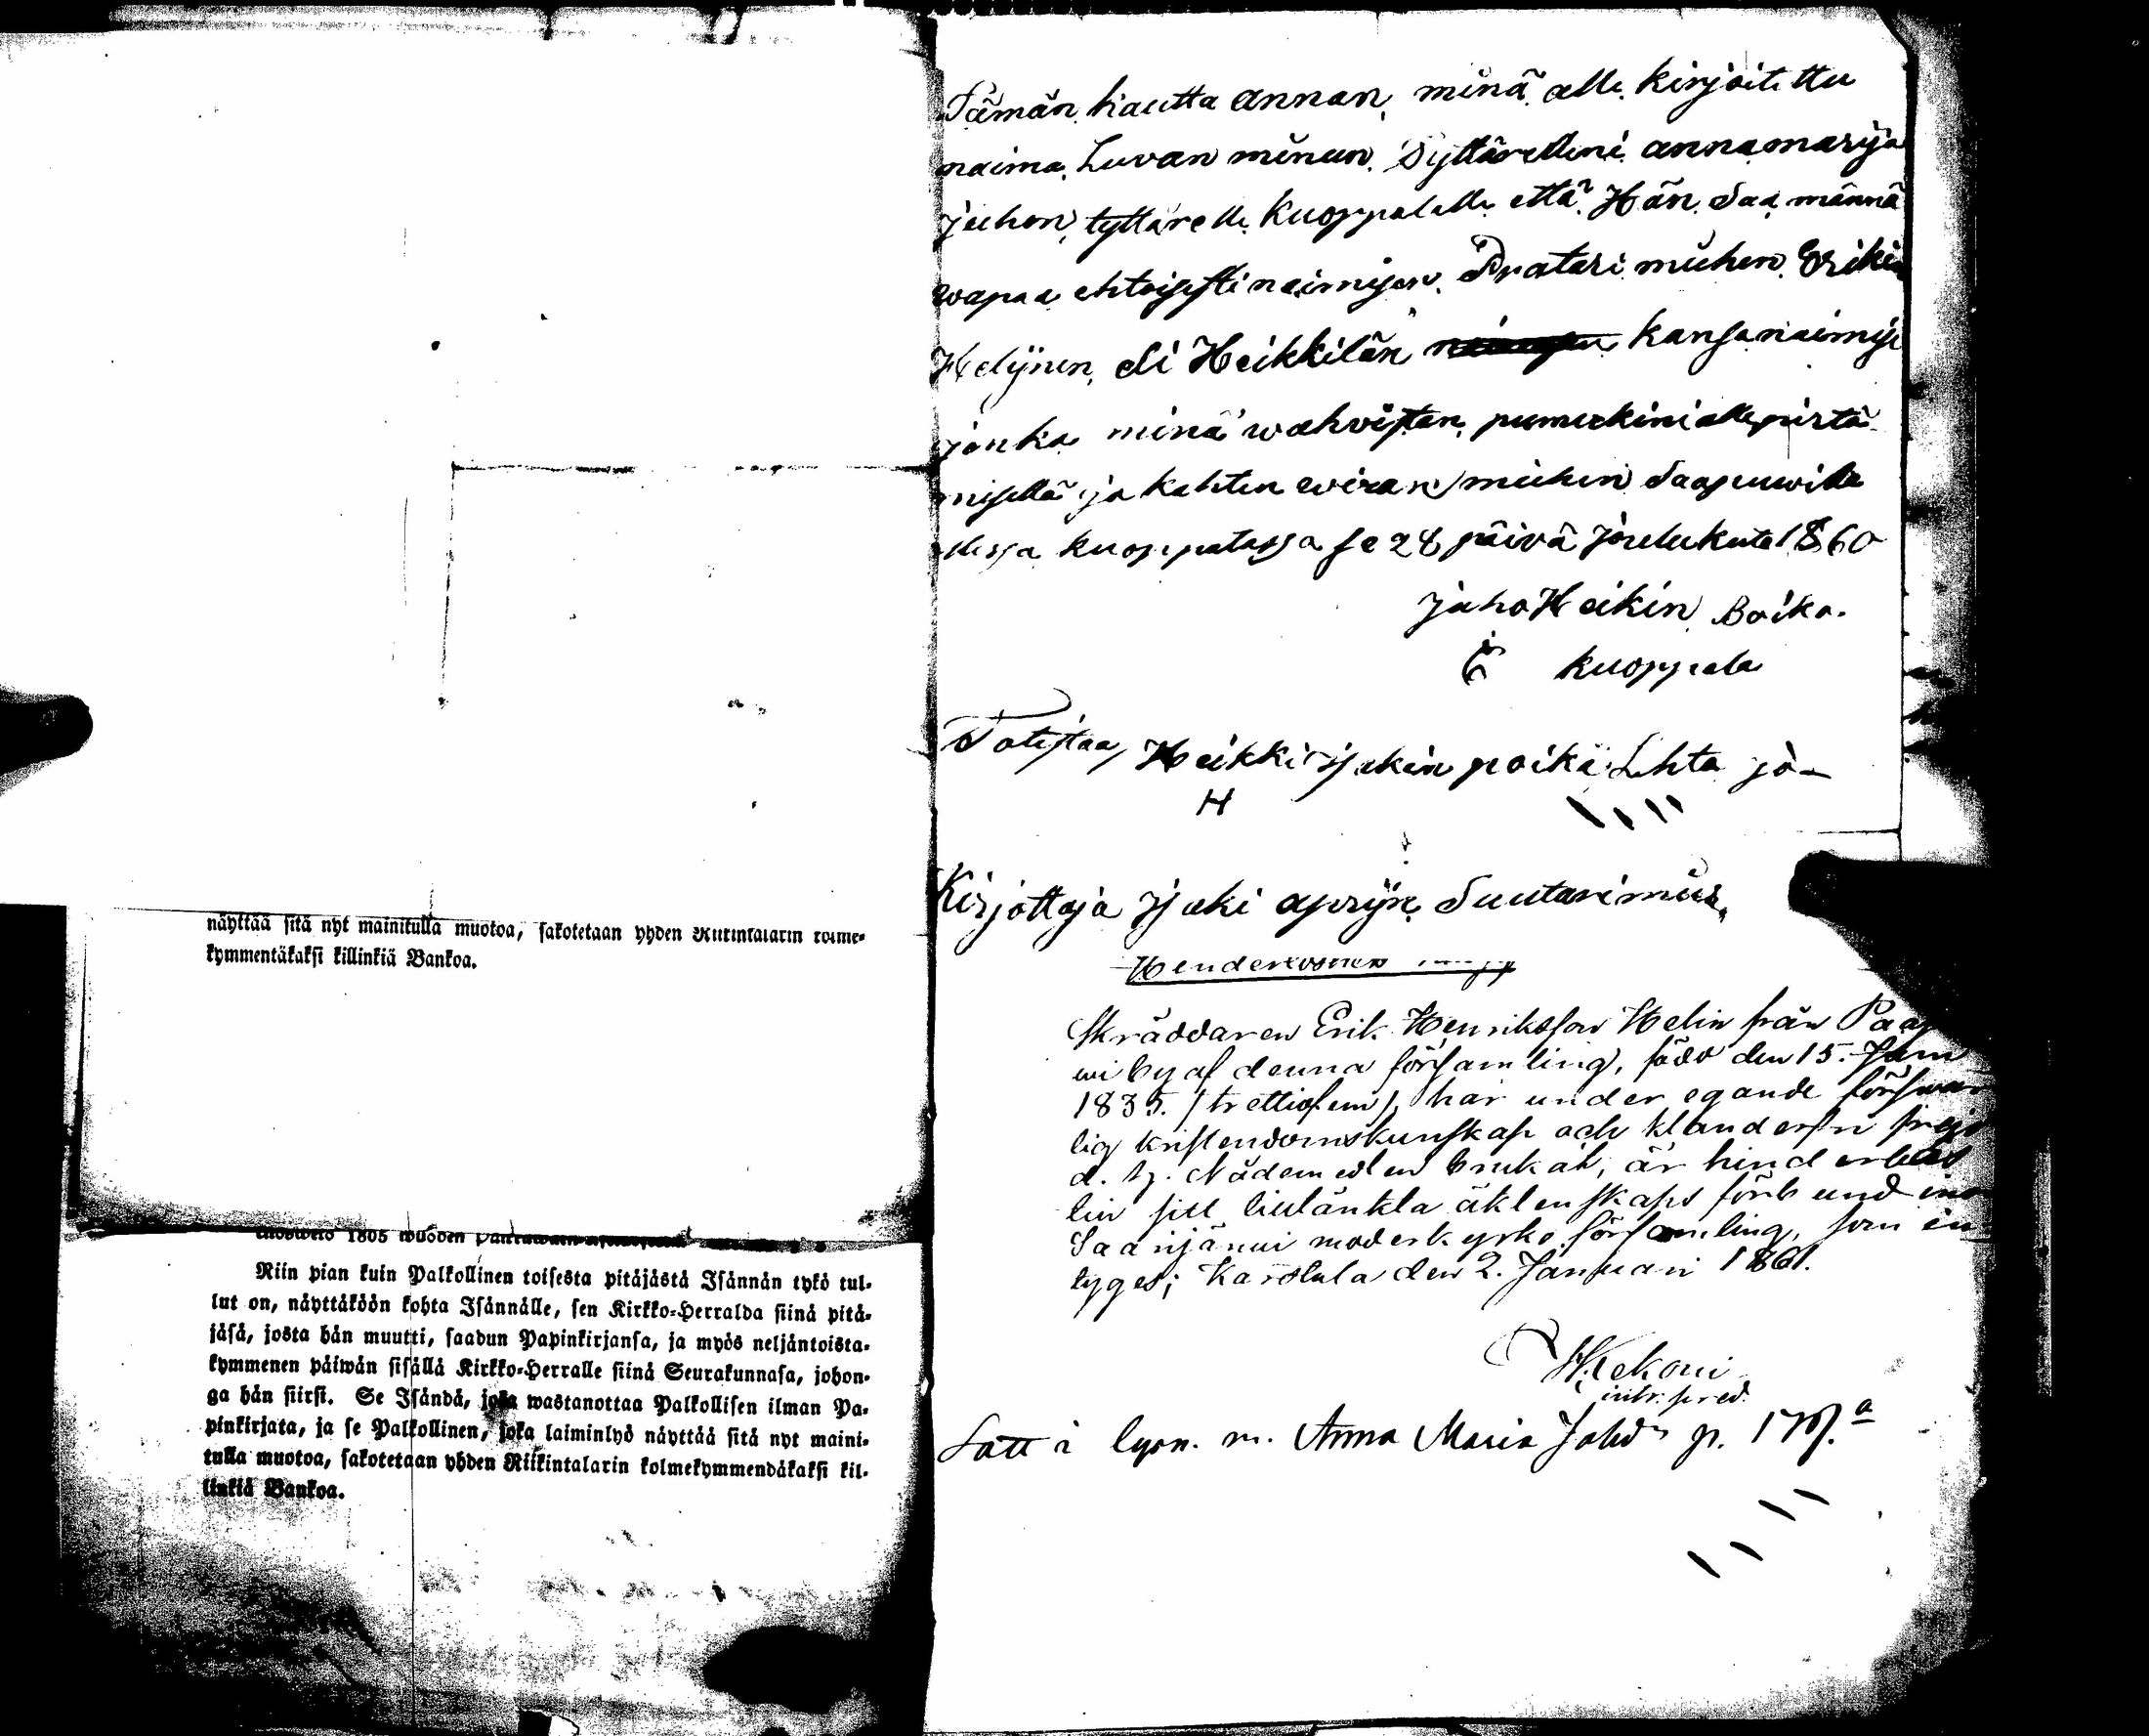 näyttää sitä nyt mainitulla muotoa, sakotetaan yhden Riikintalarin kolme-
kymmentäkaksi killinkiä Bankoa.
1805 wuoden
Niin pian kuin Palkollinen toisesta pitäjästä Isännän tykö tul-
lut on, näyttäköön kohta Isännälle, sen Kirkko-Herralda siinä pitä-
jäsä, josta hän muutti, saadun Papinkirjansa, ja myös neljäntoista-
kymmenen päiwän sisällä Kirkko-Herralle siinä Seurakunnasa, johon-
ga hän siirsi. Se Isändä, joka wastanottaa Palkollisen ilman Pa-
pinkirjata, ja se Palkollinen, joka laiminlyö näyttää sitä nyt maini-
tulla muotoa, sakotetaan yhden Riikintalarin kolmekymmendäkaksi kil-
linkiä Bankoa.
Tämän kautta annan minä alle kirjoitettu
naima Luvan minun Tyttärelleni annamarija
juhon tyttärelle kuoppalalle että Hän saa männä
wapaa ehtoisesti naimisen Prätäri miehen Erikin
Helynen eli Heikkilän kansa naimise
jonka minä wahvistan pumerkini alle pirtä
misellä ja kahten wieran miehen saapuwilla
olessa kuoppalassa se 28 päivä joulukuta 1860
juho Heikin Boika.
kuoppala
Totistaa Heikki poika Lehto jo
H
Kirjottaja Suutarimies
Skräddaren Erik Henriksson Helin från Paa
wi by af denna församling, född den 15. Juni
1835. (trettiofem), har under egande försvar
lig kristendomskunskap och klanderfri frejd
d. H. Nådemedlen brukat, är hinderlös
lin till tilltänkta äktenskaps förbund ino
Saarijärvi moderkyrko församling, som in
tyges; Karstula den 2. Januari 1861.
H. Kekoni
Anna Maria Johds p.